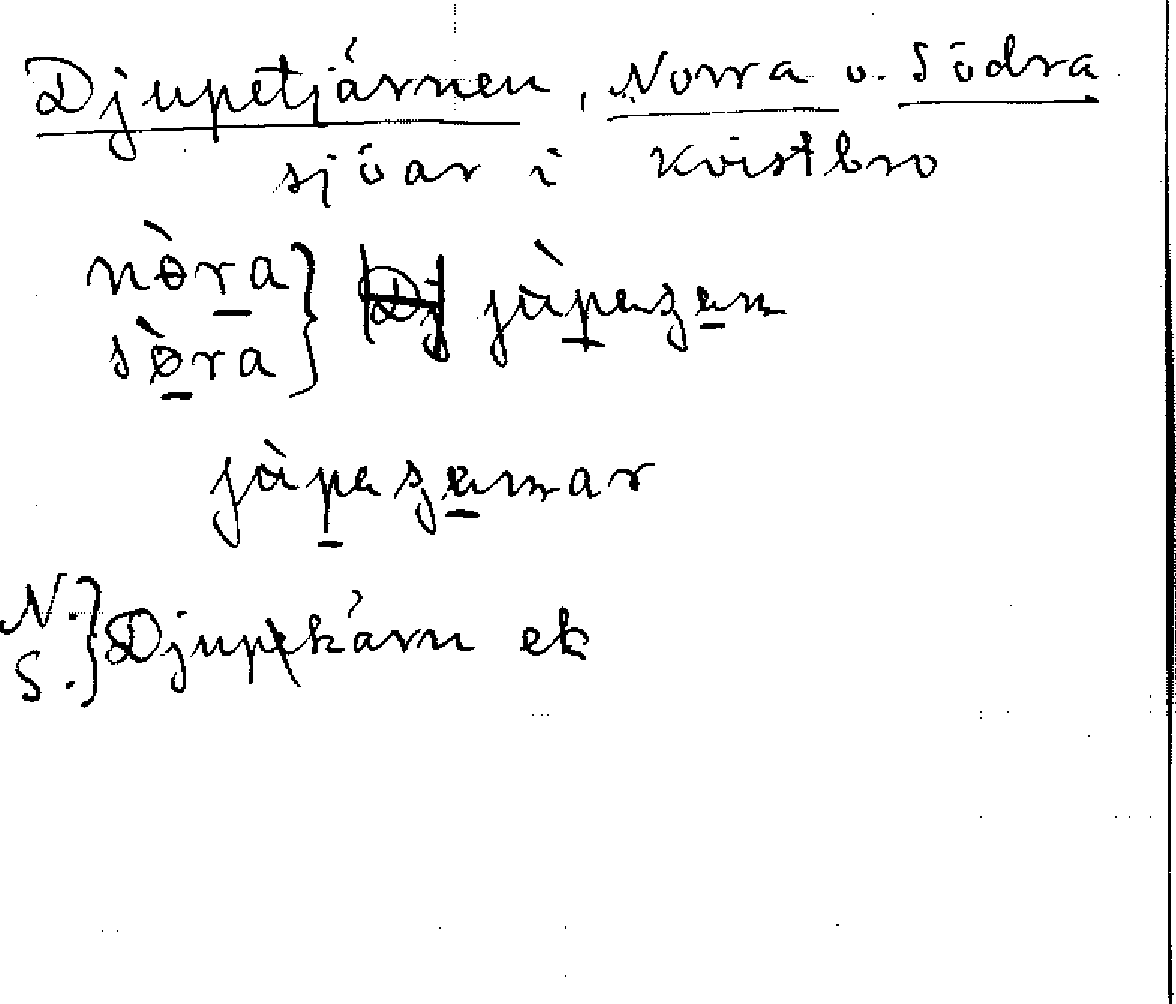 Djupetjärnen, Norra o. Södra
sjöar i Kvistbro
nòra
sòra } Dj jùpaʒan
jùpaʒanar
N.
S. } Djupkärn ek